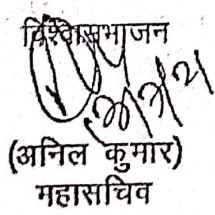 विश्वासभाजन
(अनिल कुमार)
महासचिव